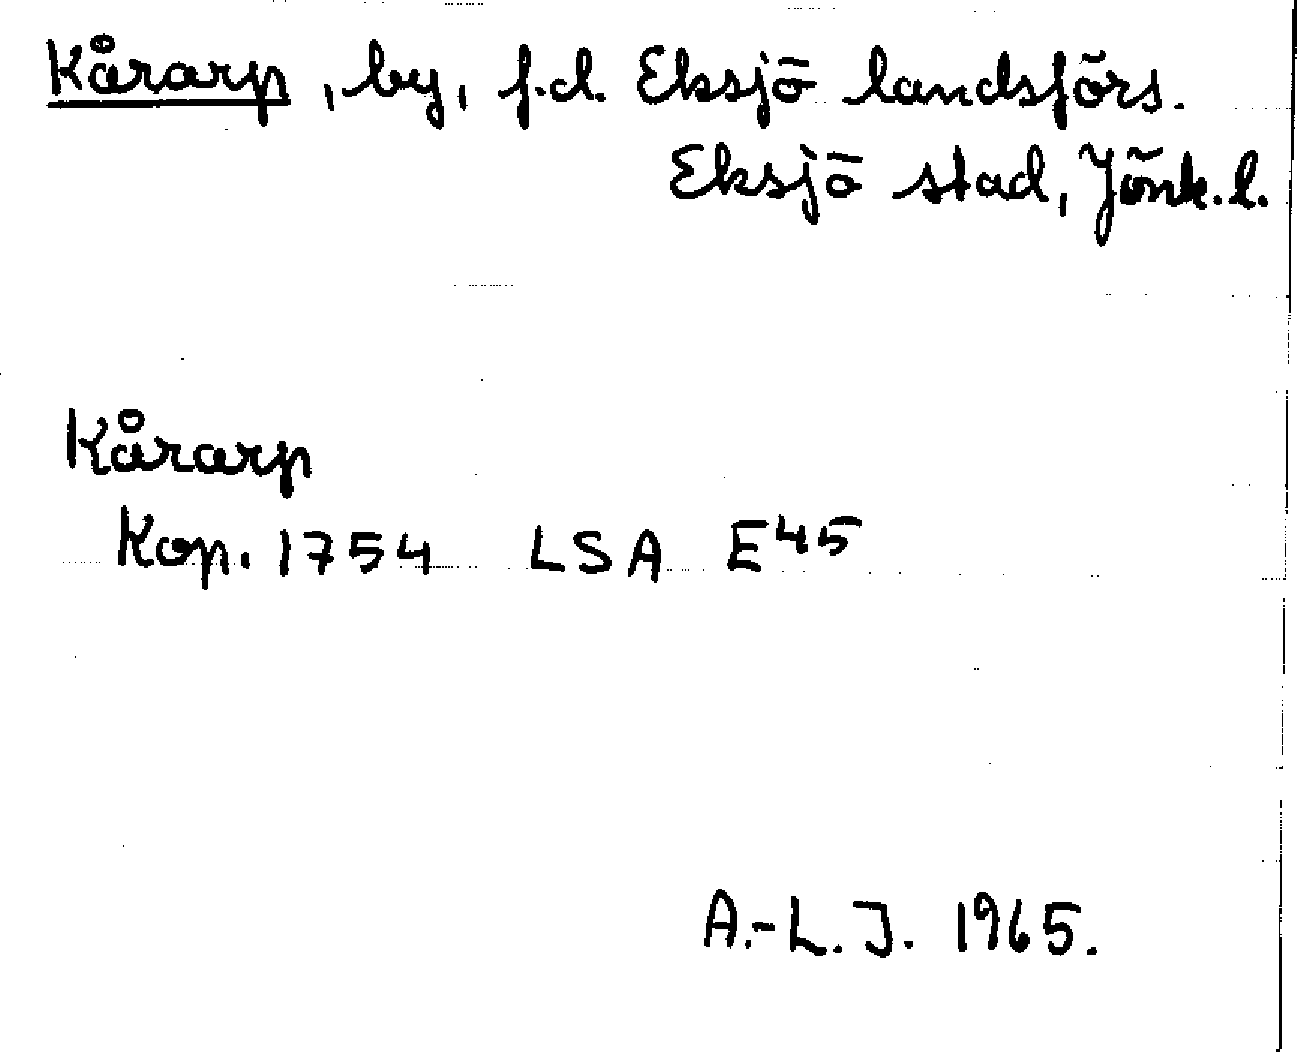 Kårarp, by, f.d. Eksjö landsförs.
Eksjö stad, Jönk. l.
Kårarp
Kop. 1754 LSA E45
A.-L.J. 1965.